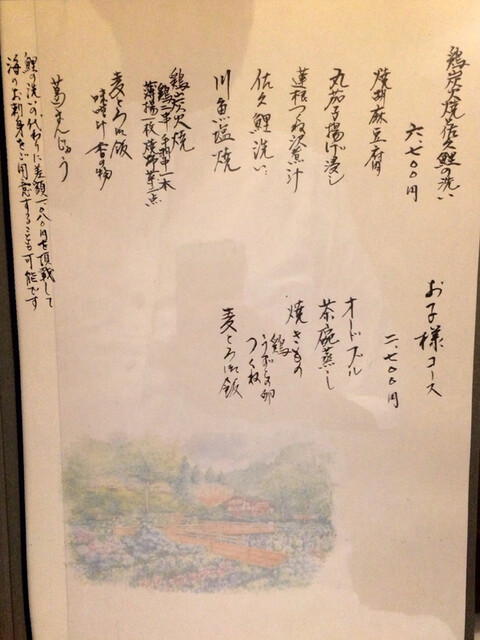 鶏炭火焼と佐久鯉の洗い
六、七〇〇円
焼胡麻豆腐
丸茄子揚げ浸し
蓮根つくね沢煮汁
佐久鯉洗い
川魚塩焼
鶏炭火焼
薄揚一枚 焼野菜二点
麦とろゝ飯
味噌汁 香の物
葛まんじゅう
鯉の洗いの代わりに差額一、〇八〇円を頂戴して
海のお刺身をご用意することも可能です
お子様コース
二、七〇〇円
オードブル
茶碗蒸し
焼きもの
鶏
うずらの卵
つくね
麦とろゝ飯